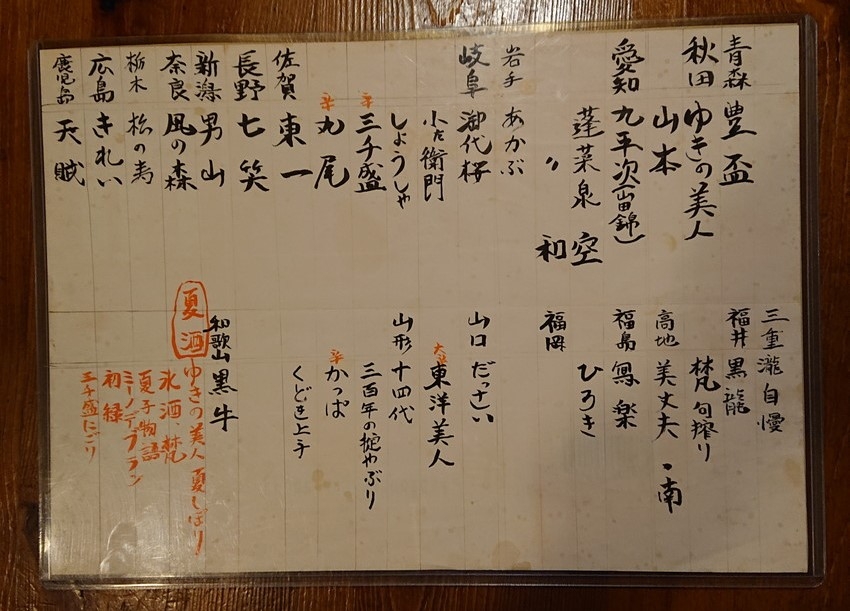 青森 豊盃
秋田 ゆきの美人
山本
愛知 九平次(山田錦)
蓬莱泉 空
〃 和
岩手 あかぶ
岐阜 御代桜
小左衛門
しょうしゃ
辛 三千盛
辛 丸尾
佐賀 東一
長野 七笑
新潟 男山
奈良 風の森
栃木 松の寿
広島 きれい
鹿児島 天賦
三重 瀧自慢
福井 黒龍
梵 旬搾り
高地 美丈夫・南
福島 寫楽
ひろき
福岡
山口 だっさい
東洋美人
山形 十四代
三百年の掟やぶり
辛 かっぱ
くどき上手
和歌山 黒牛
夏酒 ゆきの美人 夏しぼり
氷酒、梵
夏子物語
ミーノデブラン
初緑
三千盛にごり